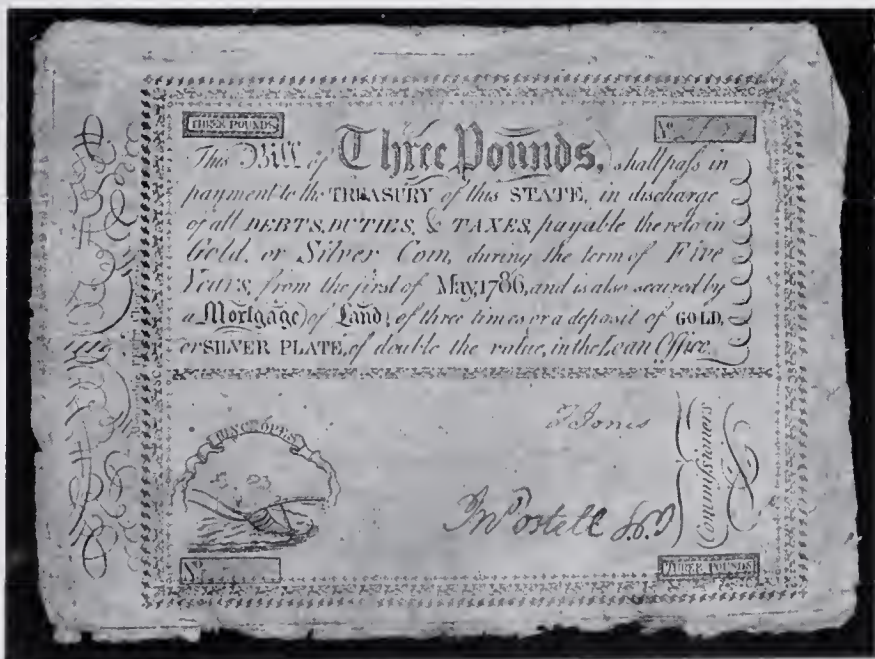 THREE POUNDS
No.
This Bill of Three Pounds, shall pass in
payment to the TREASURY of this STATE, in discharge
of all DEBTS, DUTIES, & TAXES, payable thereto in
Gold, or Silver Coin, during the term of Five
Years, from the first of May, 1786, and is also secured by
a Mortgage of Land, of three times or a deposit of GOLD,
or SILVER PLATE, of double the value, in the Loan Office.
HINC OPES
Jones
Jn Postell
Commissioners
No.
THREE POUNDS